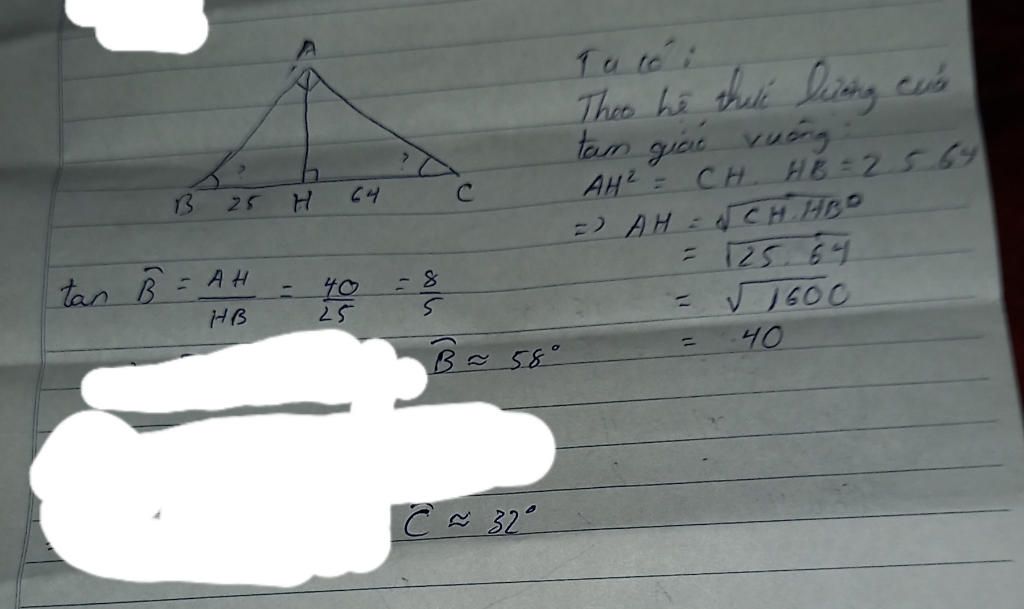 A
? ?
B 25 H 64 C
Ta có:
Theo hệ thức lượng của
tam giác vuông:
AH² = CH. HB = 25.64
=> AH = √CH.HB
= √25.64
= √1600
= 40
tan B̂ = AH/HB = 40/25 = 8/5
B̂ ≈ 58°
Ĉ ≈ 32°